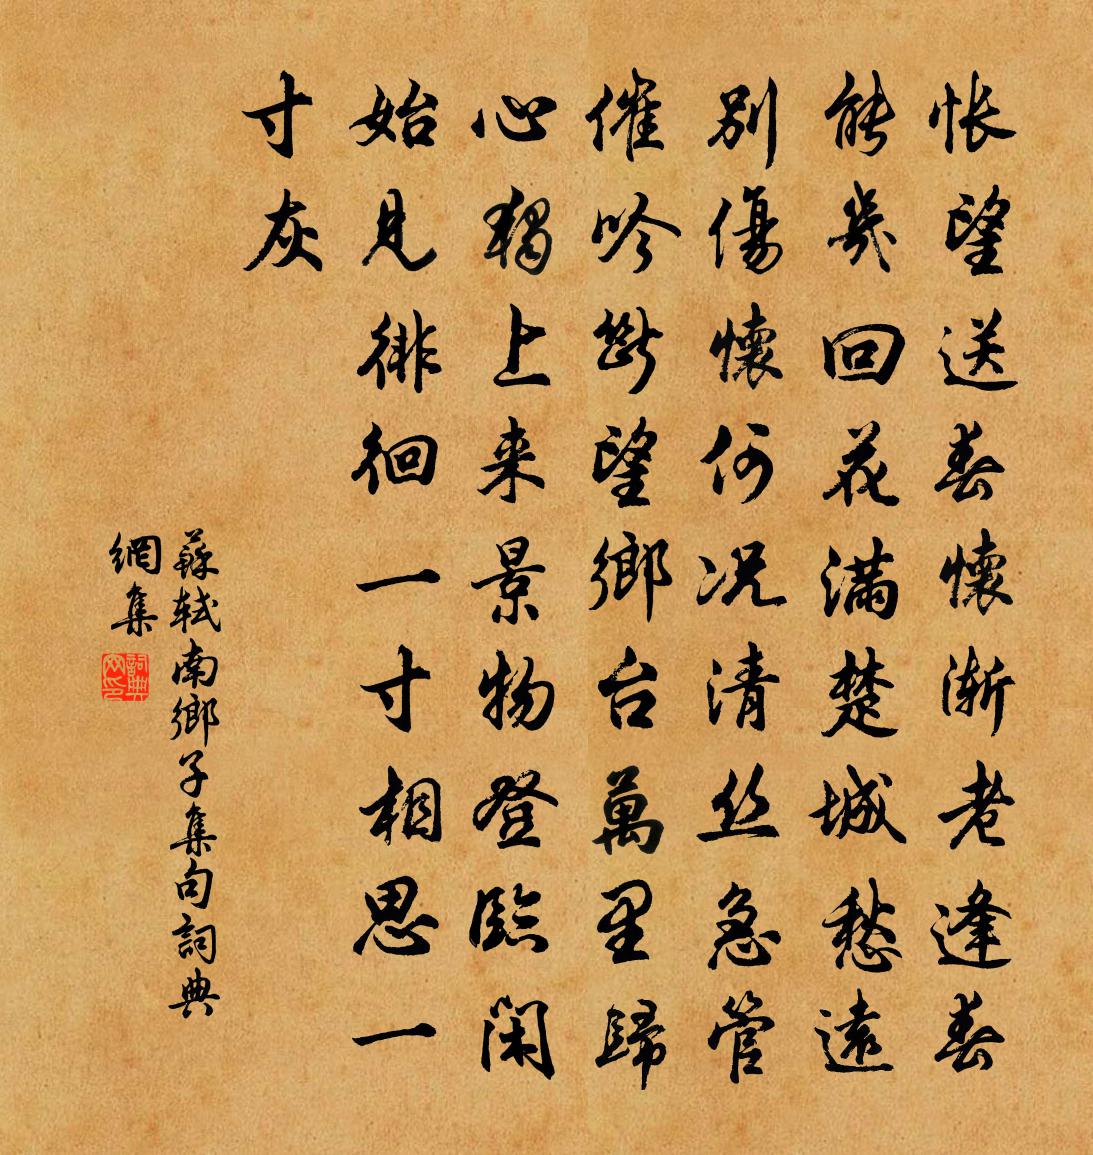 悵望送春懷漸老逢春
能幾回花滿楚城愁遠
別傷懷何況清丝急管
催吟斷望鄉台萬里歸
心獨上来景物登臨閑
始見徘徊一寸相思一
寸灰
蘇軾南鄉子集句詞典
網集
詞典